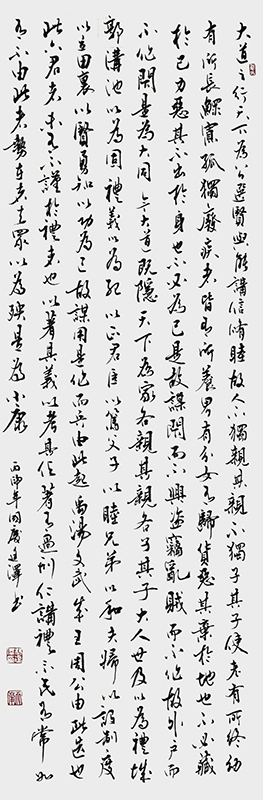 大道之行天下為公選賢與能講信脩睦故人不獨親其親不獨子其子使老有所終幼
有所長鰥寡孤獨廢疾者皆有所養男有分女有歸貨惡其棄於地也不必藏
於己力惡其不出於身也不必為己是故謀閉而不興盜竊亂賊而不作故外戶而
不作閉是為大同今大道既隱天下為家各親其親各子其子大人世及以為禮城
郭溝池以為固禮義以為紀以正君臣以篤父子以睦兄弟以和夫婦以設制度
以立田裏以賢勇知以功為己故謀用是作而兵由此起禹湯文武成王周公由此選也
此六君者未有不謹於禮者也以著其義以考其信著有過刑仁講禮示民有常如
有不由此者勢在者去眾以為殃是為小康
丙申年書